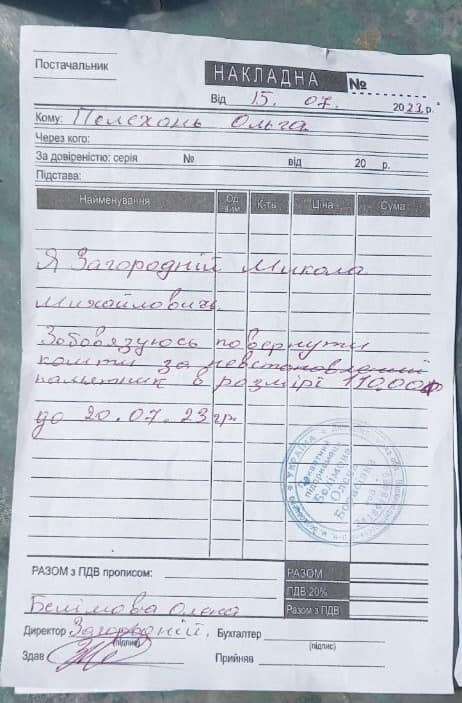 Постачальник
НАКЛАДНА №
Від 15. 07. 2023.р.
Кому: Пелехань Ольга
Через кого:
За довіреністю: серія № від 20 р.
Підстава:
Найменування Од вим К-ть Ціна Сума
Я Загородній Микола
Михайлович
Зобовязуюсь повернути
кошти за невстановлений
памятник в розмірі 110.000
до 20.07.23 гр.
УКРАЇНА
Белімова
Олена
РАЗОМ з ПДВ прописом: РАЗОМ
ПДВ 20%
Разом з ПДВ
Белімова Олена
Директор Загородній. Бухгалтер
(підпис) (підпис)
Здав Прийняв